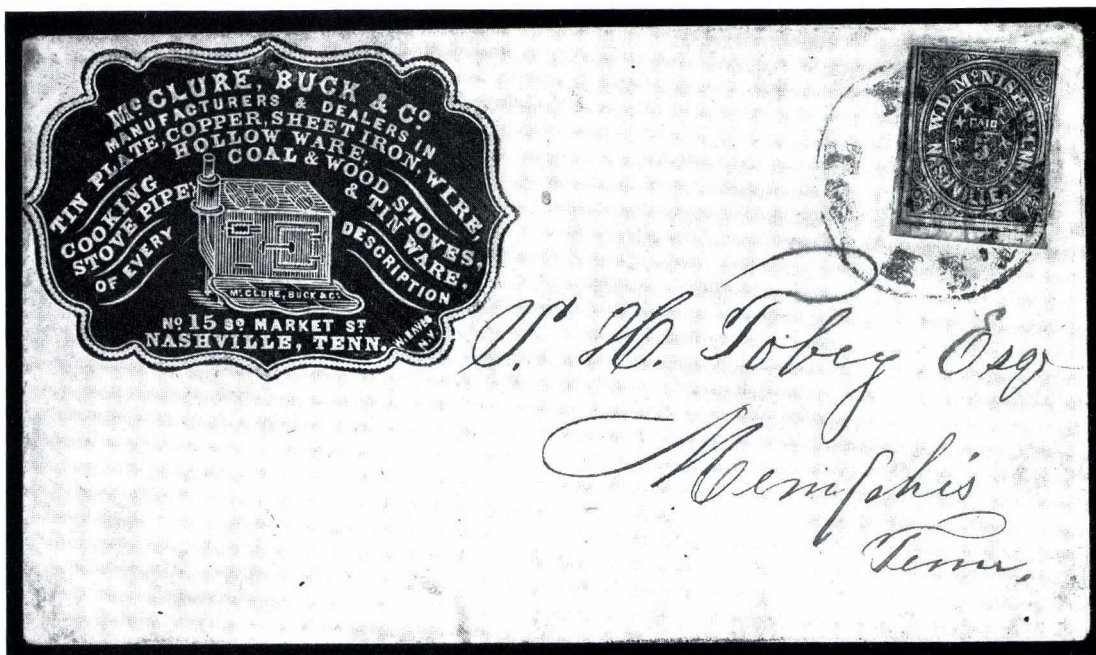 Mc CLURE, BUCK & Co
MANUFACTURERS & DEALERS IN
TIN PLATE, COPPER, SHEET IRON, WIRE,
HOLLOW WARE,
COAL & WOOD STOVES,
& TIN WARE,
COOKING
STOVE PIPE
OF EVERY
DESCRIPTION
Mc CLURE, BUCK & Co
No 15 So MARKET ST
NASHVILLE, TENN.
N.Y.
W.D. McNISH P.M. NASHVILLE
PAID
5
H. Tobey Esqr
Memphis
Tenn.